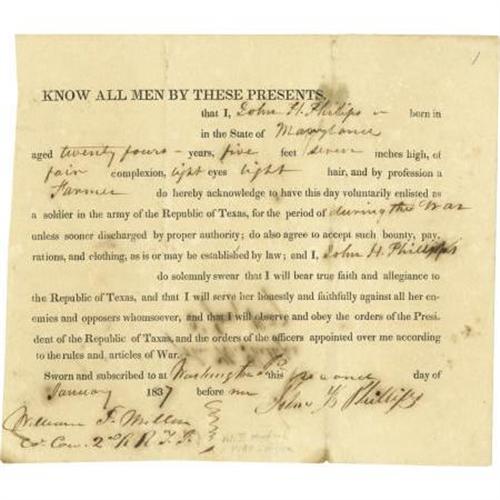 1
KNOW ALL MEN BY THESE PRESENTS,
that I, John H. Phillips born in
in the State of Maryland
aged twenty four years, five feet seven inches high, of
fair complexion, light eyes light hair, and by profession a
Farmer do hereby acknowledge to have this day voluntarily enlisted as
a soldier in the army of the Republic of Texas, for the period of during the War
unless sooner discharged by proper authority; do also agree to accept such bounty, pay,
rations, and clothing, as is or may be established by law; and I, John H. Phillips
do solemnly swear that I will bear true faith and allegiance to
the Republic of Texas, and that I will serve her honestly and faithfully against all her en-
emies and opposers whomsoever, and that I will observe and obey the orders of the Presi-
dent of the Republic of Taxas, and the orders of the officers appointed over me according
to the rules and articles of War.
Sworn and subscribed to at Washington this second day of
January 1837 before me John H Phillips
William F. Miller
Co. 2nd R